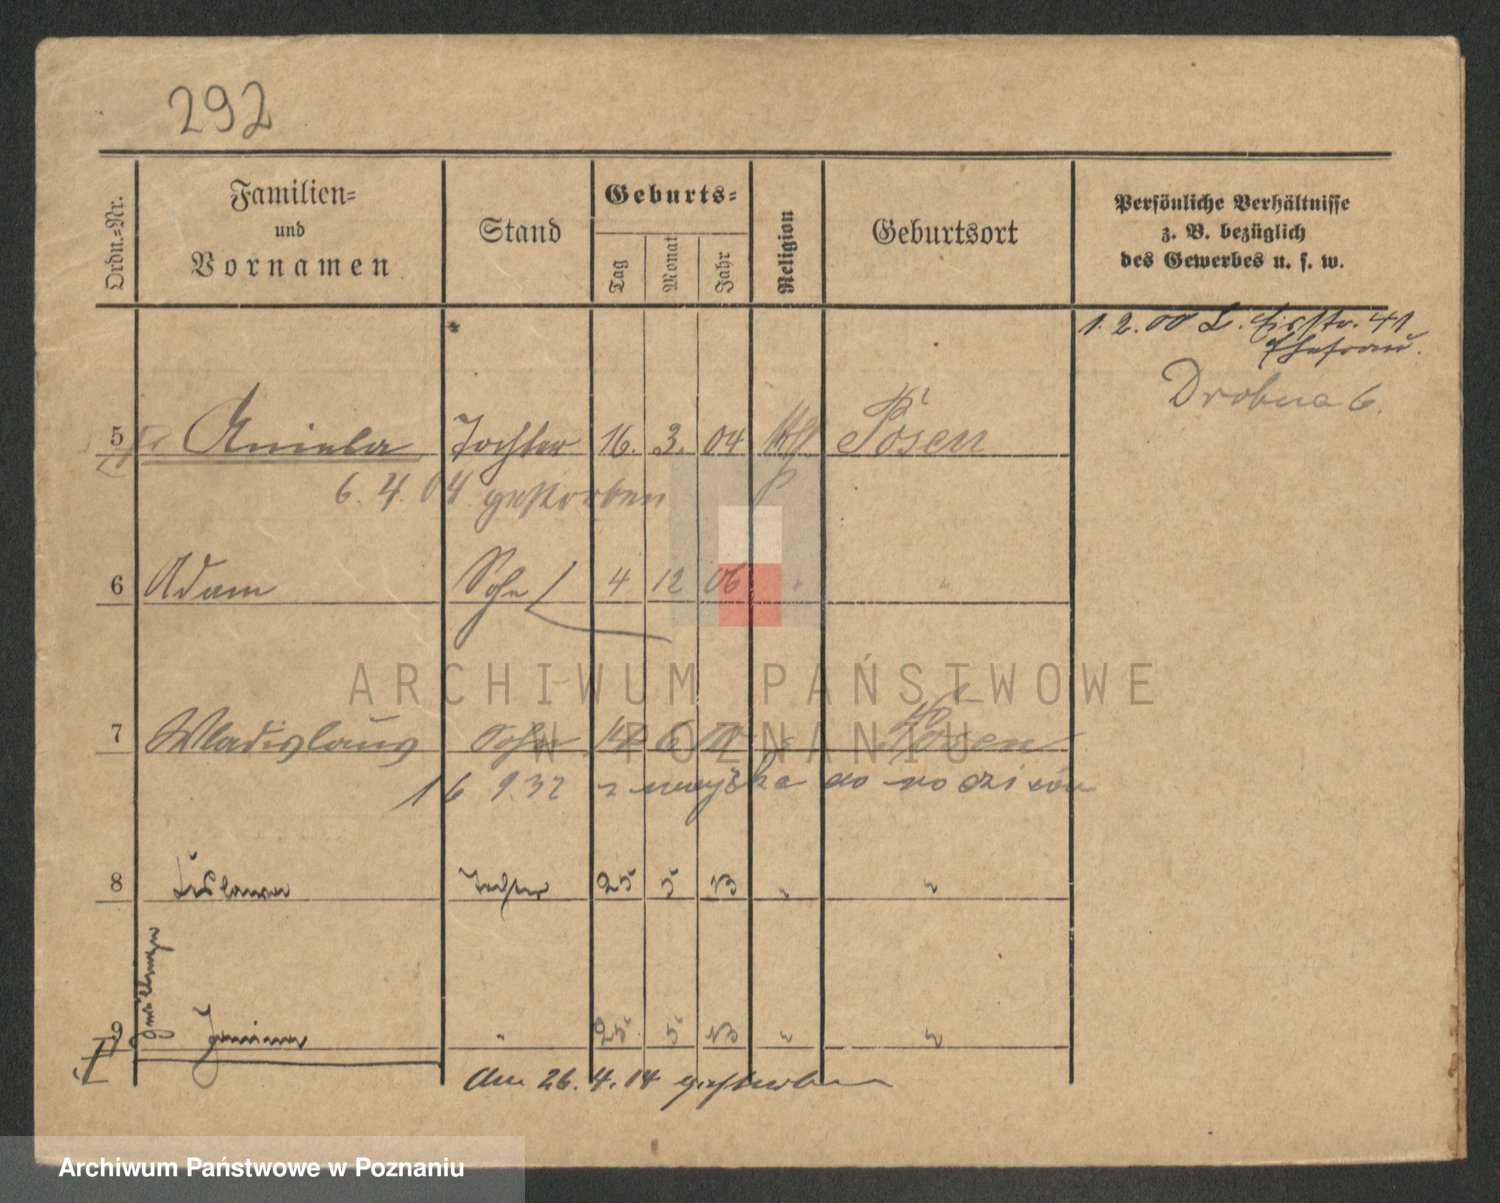 292
Ordn.-Nr.
Familien-
und
Vornamen
Stand
Geburts-
Tag
Monat
Jahr
Religion
Geburtsort
Persönliche Verhältnisse
z. B. bezüglich
des Gewerbes u. s. w.
1. 2. 00 41
Ehefrau.
Drobna 6.
5 Aniela Tochter 16. 3. 04 Kth Posen
6. 4. 04 gestorben
6 Adam Sohn 4 12 06 " "
ARCHIWUM PAŃSTWOWE
W POZNANIU
7 Wladislaus Sohn 14 6 Posen
16 9.32 do rodziców
8 Tochter 25 5 13 " "
9 Janina " 25 5 13 " "
Am 26. 4. 14 gestorben
Archiwum Państwowe w Poznaniu